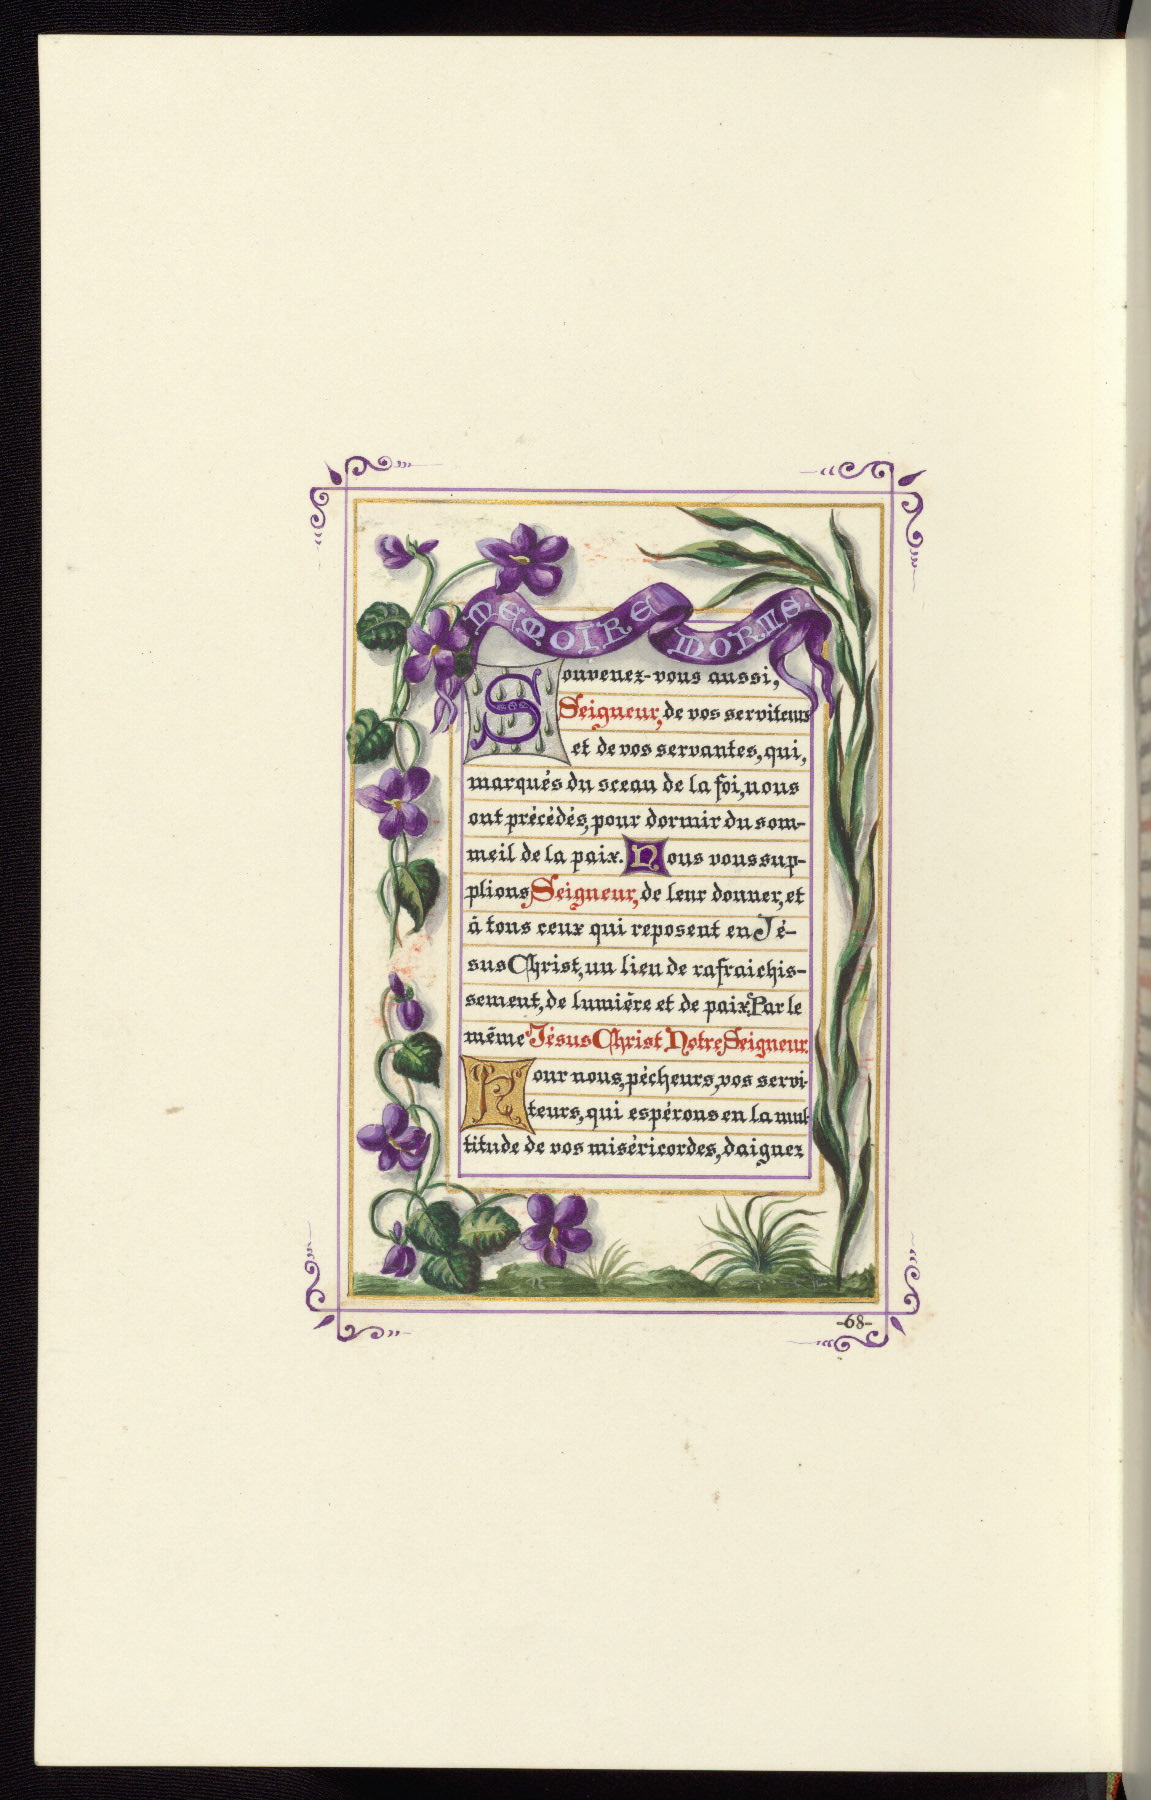 MEMOIRE MORTS.
Souvenez-vous aussi,
Seigneur, de vos serviteurs
et de vos servantes, qui,
marqués du sceau de la foi, nous
ont précédés, pour dormir du som-
meil de la paix. Nous vous sup-
plions Seigneur, de leur donner, et
à tous ceux qui reposent en Jé-
sus Christ, un lieu de rafraichis-
sement, de lumière et de paix. Par le
même Jésus Christ Notre Seigneur.
Pour nous, pécheurs, vos servi-
teurs, qui espérons en la mul-
titude de vos miséricordes, daignez
-68-